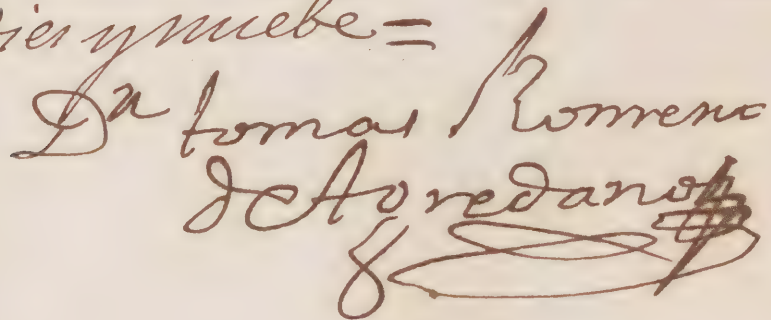 Diez y nuebe =
Dn tomas Romero
de Avredano